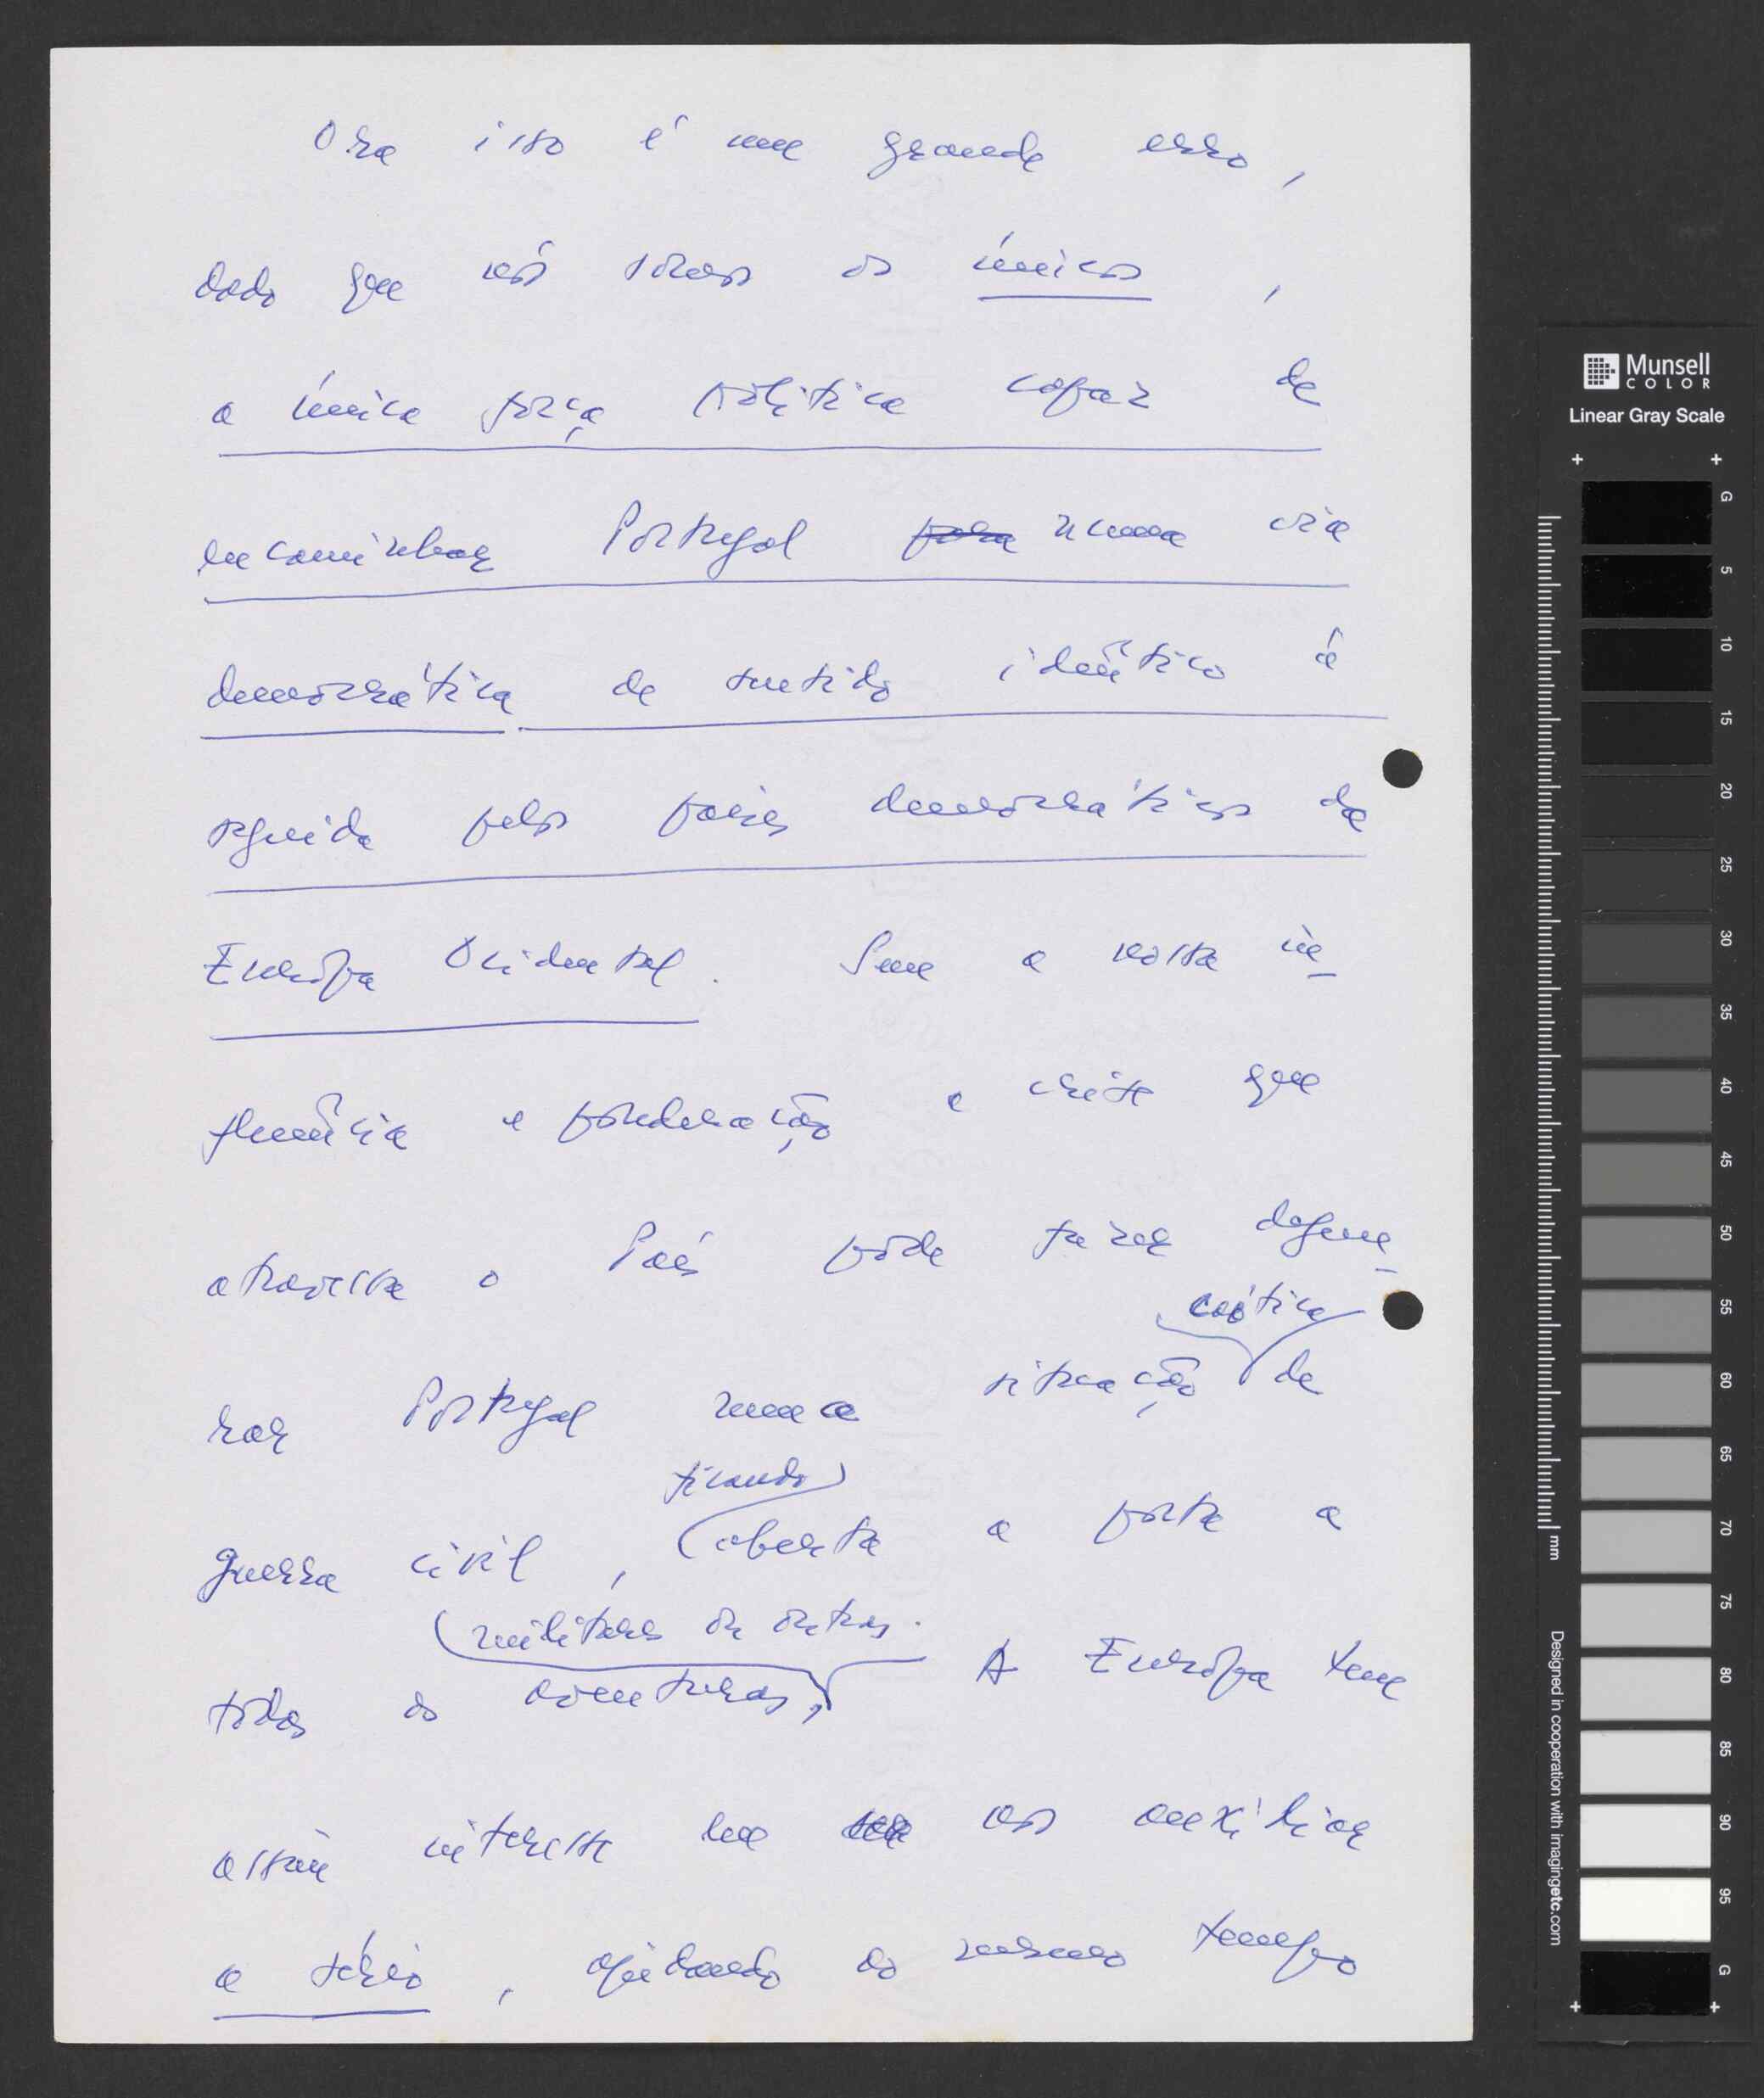 Ora isso é um grande erro,
dado que nós somos os únicos,
a única força política capaz de
encaminhar Portugal para numa via
democrática de sentido idêntico à
seguida pelos países democráticos da
Europa Ocidental. Sem a nossa in-
fluência e ponderação a crise que
atravessa o País pode fazer degene-
caótica
rar Portugal numa situação de
ficando
guerra civil, aberta a porta a
militares ou outras.
todas as aventuras, A Europa tem
assim interesse em nos auxiliar
a sério, ajudando ao mesmo tempo
Munsell
COLOR
Linear Gray Scale
G
5
10
15
20
25
30
35
40
45
50
55
60
65
70
75
80
85
90
95
G
mm
Designed in cooperation with imagingetc.com